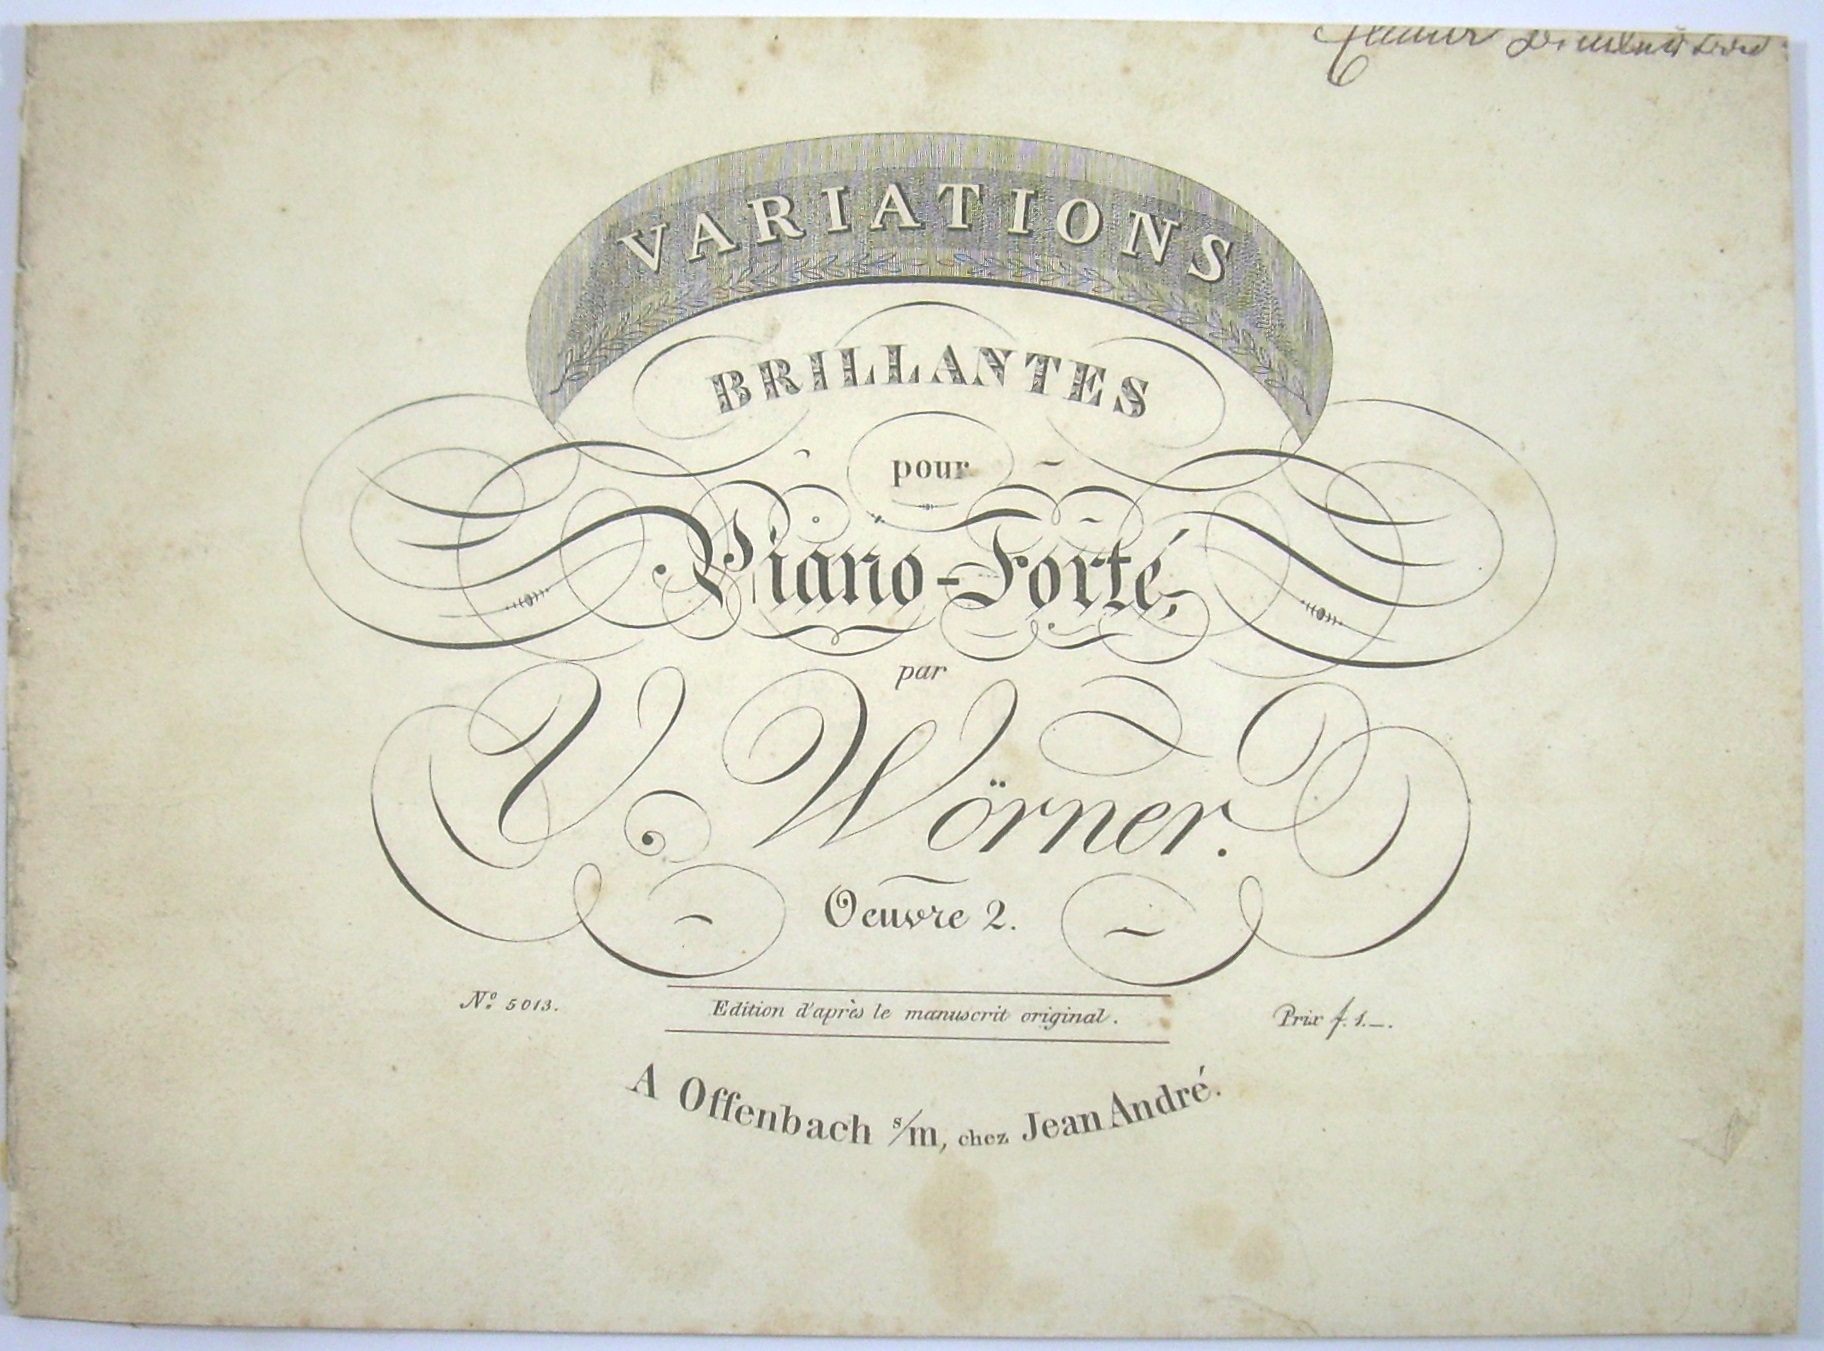 VARIATIONS
BRILLANTES
pour
Piano-Forté,
par
V. Wörner.
Oeuvre 2.
Nº 5013.
Edition d'après le manuscrit original.
Prix f. 1._.
A Offenbach s/m, chez Jean André.